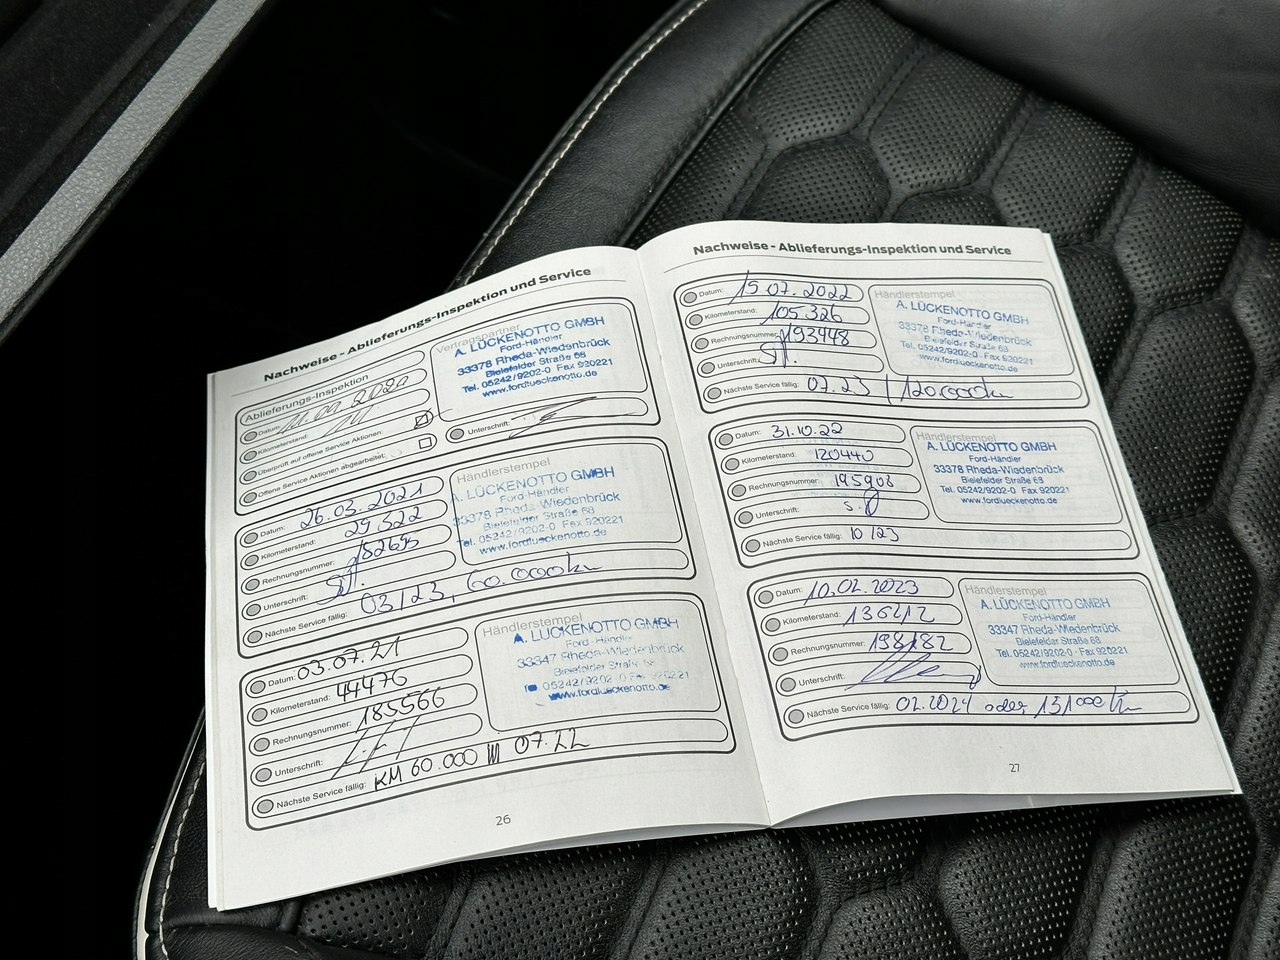 Nachweise - Ablieferungs-Inspektion und Service
Ablieferungs-Inspektion
Datum:
Kilometerstand:
Überprüft auf offene Service Aktionen:
Offene Service Aktionen abgearbeitet:
Vertragspartner
A. LÜCKENOTTO GMBH
Ford-Händler
33378 Rheda-Wiedenbrück
Bielefelder Straße 68
Tel. 05242/9202-0 Fax 920221
www.fordlueckenotto.de
Unterschrift:
Datum: 26.03.2021
Kilometerstand: 29.322
Rechnungsnummer: 182695
Unterschrift:
Nächste Service fällig: 03/23, 60.000km
Händlerstempel
A. LÜCKENOTTO GMBH
Ford-Händler
33378 Rheda-Wiedenbrück
Bielefelder Straße 68
Tel. 05242/9202-0 Fax 920221
www.fordlueckenotto.de
Datum: 03.07.21
Kilometerstand: 44476
Rechnungsnummer: 185566
Unterschrift:
Nächste Service fällig: KM 60.000 07.22
Händlerstempel
A. LÜCKENOTTO GMBH
Ford-Händler
33347 Rheda-Wiedenbrück
Bielefelder Straße 68
05242/9202-0 Fax 920221
www.fordlueckenotto.de
26
Nachweise - Ablieferungs-Inspektion und Service
Datum: 15.07.2022
Kilometerstand: 105.326
Rechnungsnummer: 193448
Unterschrift:
Nächste Service fällig: 07.23 / 120.000km
Händlerstempel
A. LÜCKENOTTO GMBH
Ford-Händler
33378 Rheda-Wiedenbrück
Bielefelder Straße 68
Tel. 05242/9202-0 Fax 920221
www.fordlueckenotto.de
Datum: 31.10.22
Kilometerstand: 120440
Rechnungsnummer: 195908
Unterschrift:
Nächste Service fällig: 10/23
Händlerstempel
A. LÜCKENOTTO GMBH
Ford-Händler
33378 Rheda-Wiedenbrück
Bielefelder Straße 68
Tel. 05242/9202-0 Fax 920221
www.fordlueckenotto.de
Datum: 10.02.2023
Kilometerstand: 136412
Rechnungsnummer: 198182
Unterschrift:
Nächste Service fällig: 02.2024 oder 151000 Km
Händlerstempel
A. LÜCKENOTTO GMBH
Ford-Händler
33347 Rheda-Wiedenbrück
Bielefelder Straße 68
Tel. 05242/9202-0 Fax 920221
www.fordlueckenotto.de
27